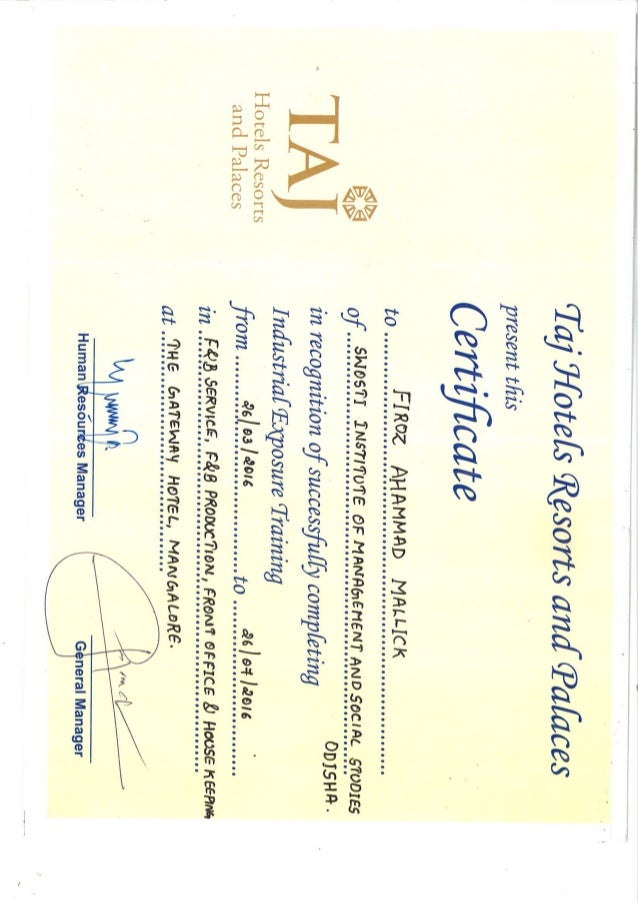 Taj Hotels Resorts and Palaces
present this
Certificate
TAJ
Hotels Resorts
and Palaces
to FIROZ AHAMMAD MALLICK
of SWOSTI INSTITUTE OF MANAGEMENT AND SOCIAL STUDIES
ODISHA.
in recognition of successfully completing
Industrial Exposure Training
from 26/03/2016 to 26/07/2016
in F&B SERVICE, F&B PRODUCTION, FRONT OFFICE & HOUSE KEEPING
at THE GATEWAY HOTEL, MANGALORE.
Human Resources Manager
General Manager